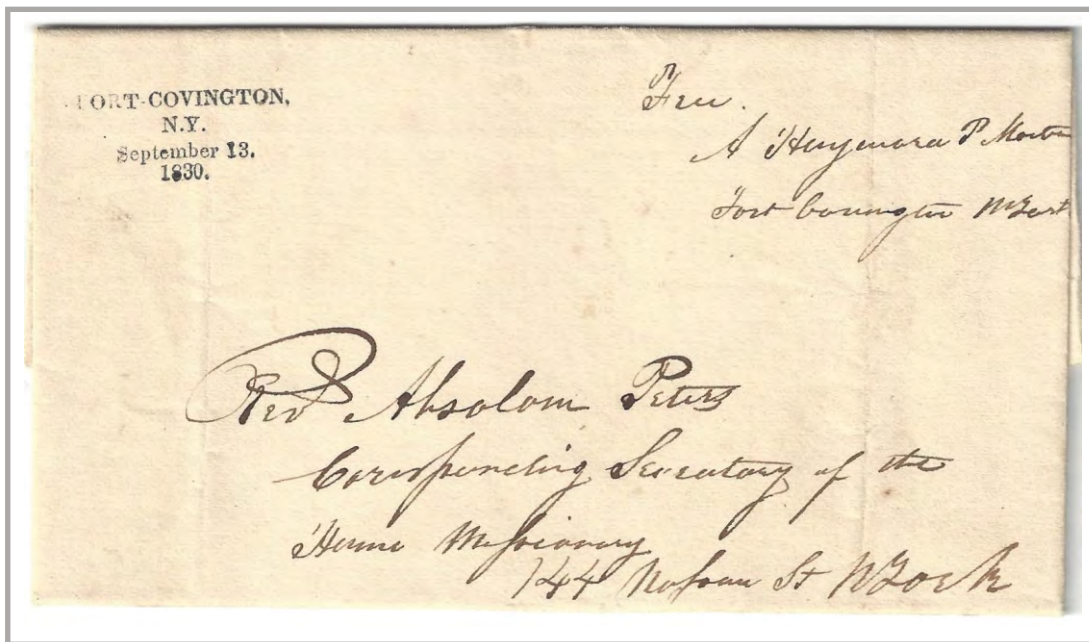 FORT-COVINGTON,
N.Y.
September 13.
1830.
Free.
A Haywara P Master
Fort Covington NYork
Rev Absolom Peters
Corresponding Secratary of the
Home Missionary
144 Nassau St NYork